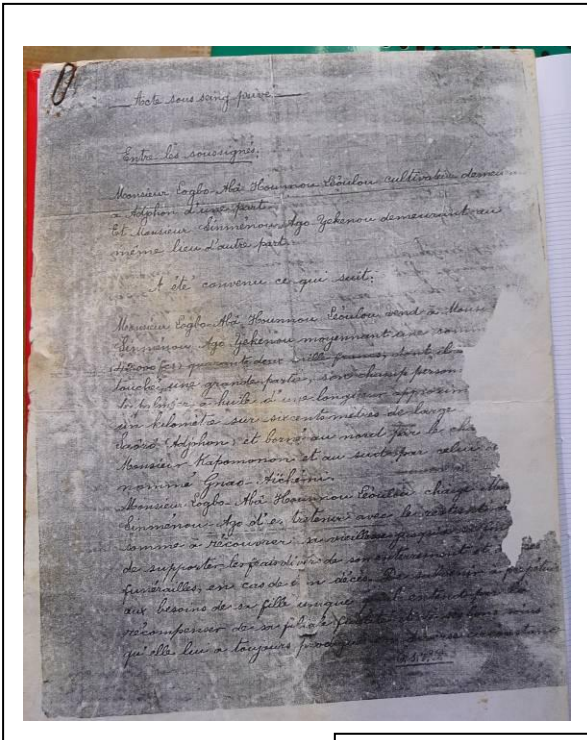 Acte sous seing privé
Entre les soussignés:
Monsieur Eogbo Aba Hounnou Léoulou cultivateur demeu
à Adphon d'une part
Et Monsieur Sinménou Ago Yekenou demeurant au
même lieu d'autre part
A été convenu ce qui suit:
Monsieur Eogbo Aba Hounnou Léoulou vend à Mons
Sinménou Ago Yekenou moyennant une som
42.000 frs quarante deux mille francs, dont il a
touché une grande partie, son champ person
à huile d'une longueur approxim
un kilomètre sur six cents mètres de large
Adphon, et borné au nord par le ch
Monsieur Kapomonon et au sud par celui
nommé Gnao Aïchémi.
Monsieur Eogbo Aba Hounnou Léoulou charge Mon
Sinménou Ago d'entretenir avec le reste de
somme à récouvrer sa vieillesse jusqu'à
de supporter les frais divers de son enterrement et
funérailles, en cas de décès. De subvenir
aux besoins de sa fille unique
récompenser de sa
qu'elle lui a toujours